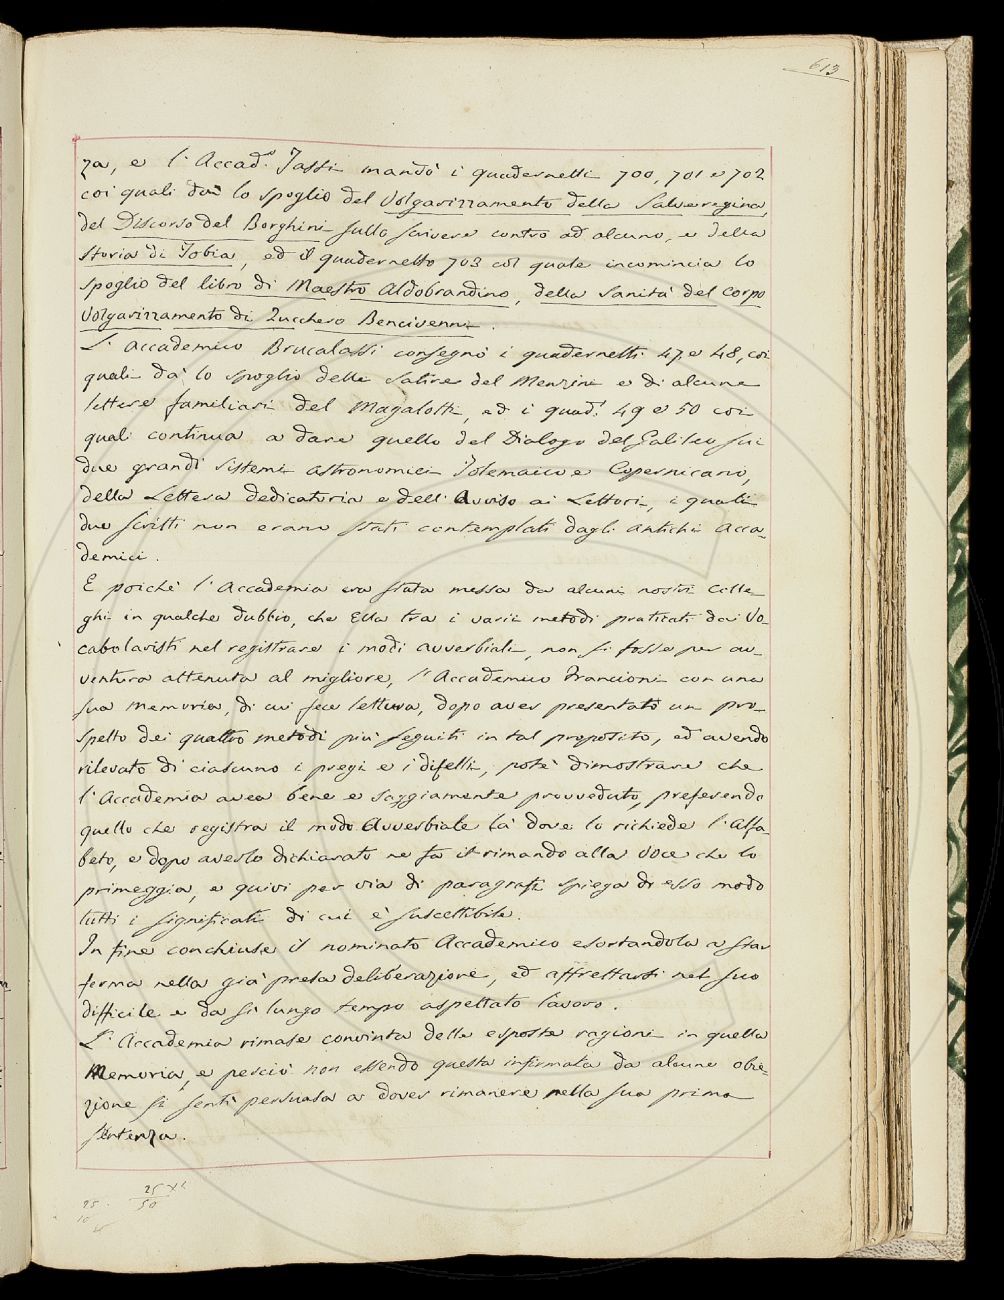 613
za, e l'Accad.º Tassi mandò i quadernetti 700, 701 e 702
coi quali dà lo spoglio del Volgarizzamento della Salveregina,
del Discorso del Borghini sullo scivere contro ad alcuno, e della
Storia di Tobia, ed il quadernetto 703 col quale incomincia lo
spoglio del libro di Maestro Aldobrandino, della Sanità del Corpo
Volgarizzamento di Zucchero Bencivenni.
L'Accademico Brucalassi consegnò i quadernetti 47, e 48, coi
quali dà lo spoglio delle Satire del Menzini e di alcune
lettere familiari del Magalotti, ed i quad.i 49 e 50 coi
quali continua a dare quello del Dialogo del Galileo sui
due grandi sistemi astronomici Tolemaico e Copernicano,
della Lettera dedicatoria e dell'Avviso ai Lettori, i quali
due scritti non erano stati contemplati dagli antichi Acca-
demici.
E poichè l'Accademia era stata messa da alcuni nostri Colle
ghi in qualche dubbio, che Ella tra i varii metodi praticati dai Vo-
cabolaristi nel registrare i modi avverbiali, non si fosse per av-
ventura attenuta al migliore, l'Accademico Francioni con una
sua Memoria, di cui fece lettura, dopo aver presentato un pro-
spetto dei quattro metodi più seguiti in tal proposito, ed avendo
rilevato di ciascuno i pregi e i difetti, potè dimostrare che
l'Accademia avea bene e saggiamente provveduto, preferendo
quello che registra il modo Avverbiale là dove lo richiede l'Alfa-
beto, e dopo averlo dichiarato ne fa il rimando alla Voce che lo
primeggia, e quivi per via di paragrafi spiega di esso modo
tutti i significati di cui è suscettibile.
In fine conchiuse il nominato Accademico esortandola a star
ferma nella già presa deliberazione, ed affrettarsi nel suo
difficile e da sì lungo tempo aspettato lavoro.
L'Accademia rimase convinta delle esposte ragioni in quella
Memoria, e perciò non essendo questa infirmata da alcune obie-
zione si sentì persuasa a dover rimanere nella sua prima
sentenza.
25
50
25